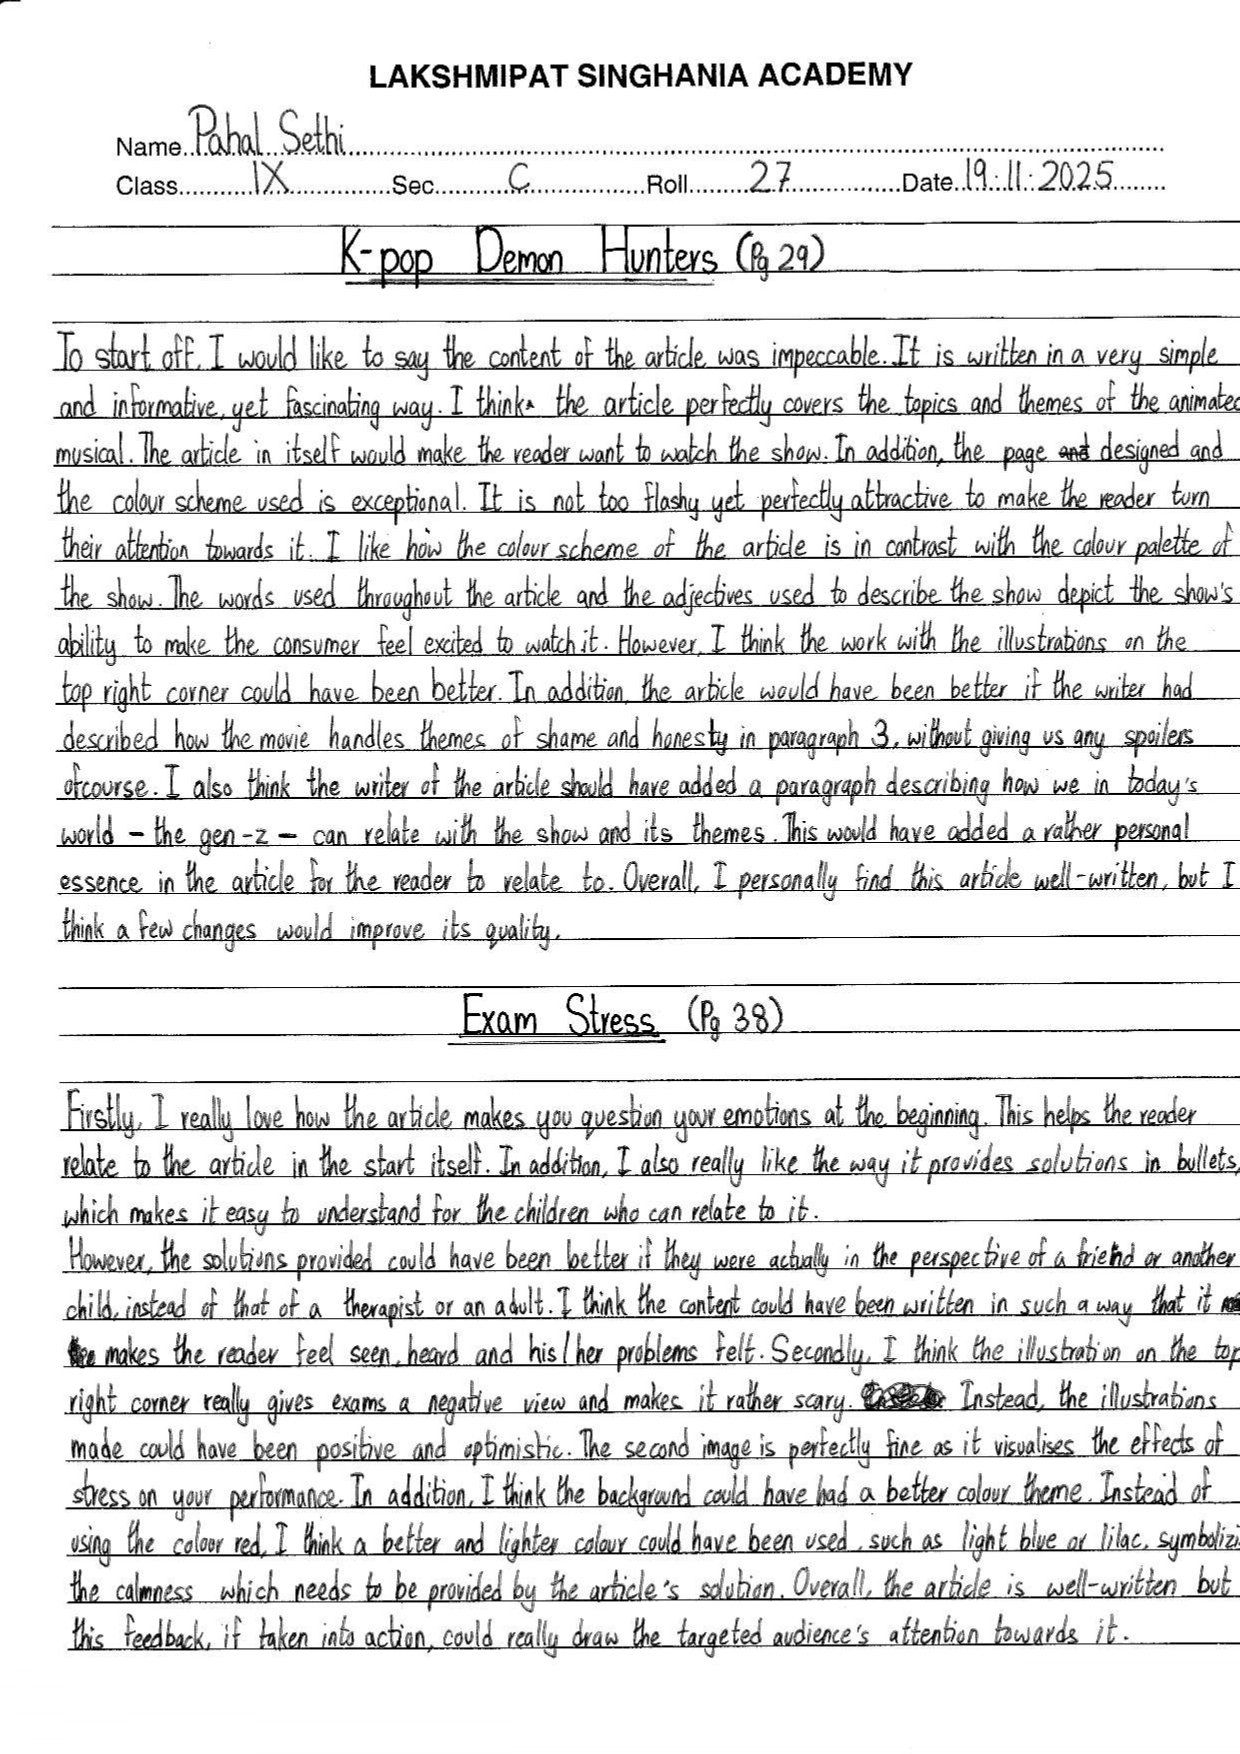 LAKSHMIPAT SINGHANIA ACADEMY
Name Pahal Sethi
Class IX Sec C Roll 27 Date 19.11.2025
K-pop Demon Hunters (Pg 29)
To start off, I would like to say the content of the article was impeccable. It is written in a very simple
and informative, yet fascinating way. I think the article perfectly covers the topics and themes of the animated
musical. The article in itself would make the reader want to watch the show. In addition, the page and designed and
the colour scheme used is exceptional. It is not too flashy yet perfectly attractive to make the reader turn
their attention towards it. I like how the colour scheme of the article is in contrast with the colour palette of
the show. The words used throughout the article and the adjectives used to describe the show depict the show's
ability to make the consumer feel excited to watch it. However, I think the work with the illustrations on the
top right corner could have been better. In addition, the article would have been better if the writer had
described how the movie handles themes of shame and honesty in paragraph 3, without giving us any spoilers
ofcourse. I also think the writer of the article should have added a paragraph describing how we in today's
world – the gen-z – can relate with the show and its themes. This would have added a rather personal
essence in the article for the reader to relate to. Overall, I personally find this article well-written, but I
think a few changes would improve its quality.
Exam Stress (Pg 38)
Firstly, I really love how the article makes you question your emotions at the beginning. This helps the reader
relate to the article in the start itself. In addition, I also really like the way it provides solutions in bullets,
which makes it easy to understand for the children who can relate to it.
However, the solutions provided could have been better if they were actually in the perspective of a friend or another
child, instead of that of a therapist or an adult. I think the content could have been written in such a way that it
makes the reader feel seen, heard and his/her problems felt. Secondly, I think the illustration on the top
right corner really gives exams a negative view and makes it rather scary. Instead, the illustrations
made could have been positive and optimistic. The second image is perfectly fine as it visualises the effects of
stress on your performance. In addition, I think the background could have had a better colour theme. Instead of
using the colour red, I think a better and lighter colour could have been used, such as light blue or lilac, symbolizi
the calmness which needs to be provided by the article's solution. Overall, the article is well-written but
this feedback, if taken into action, could really draw the targeted audience's attention towards it.